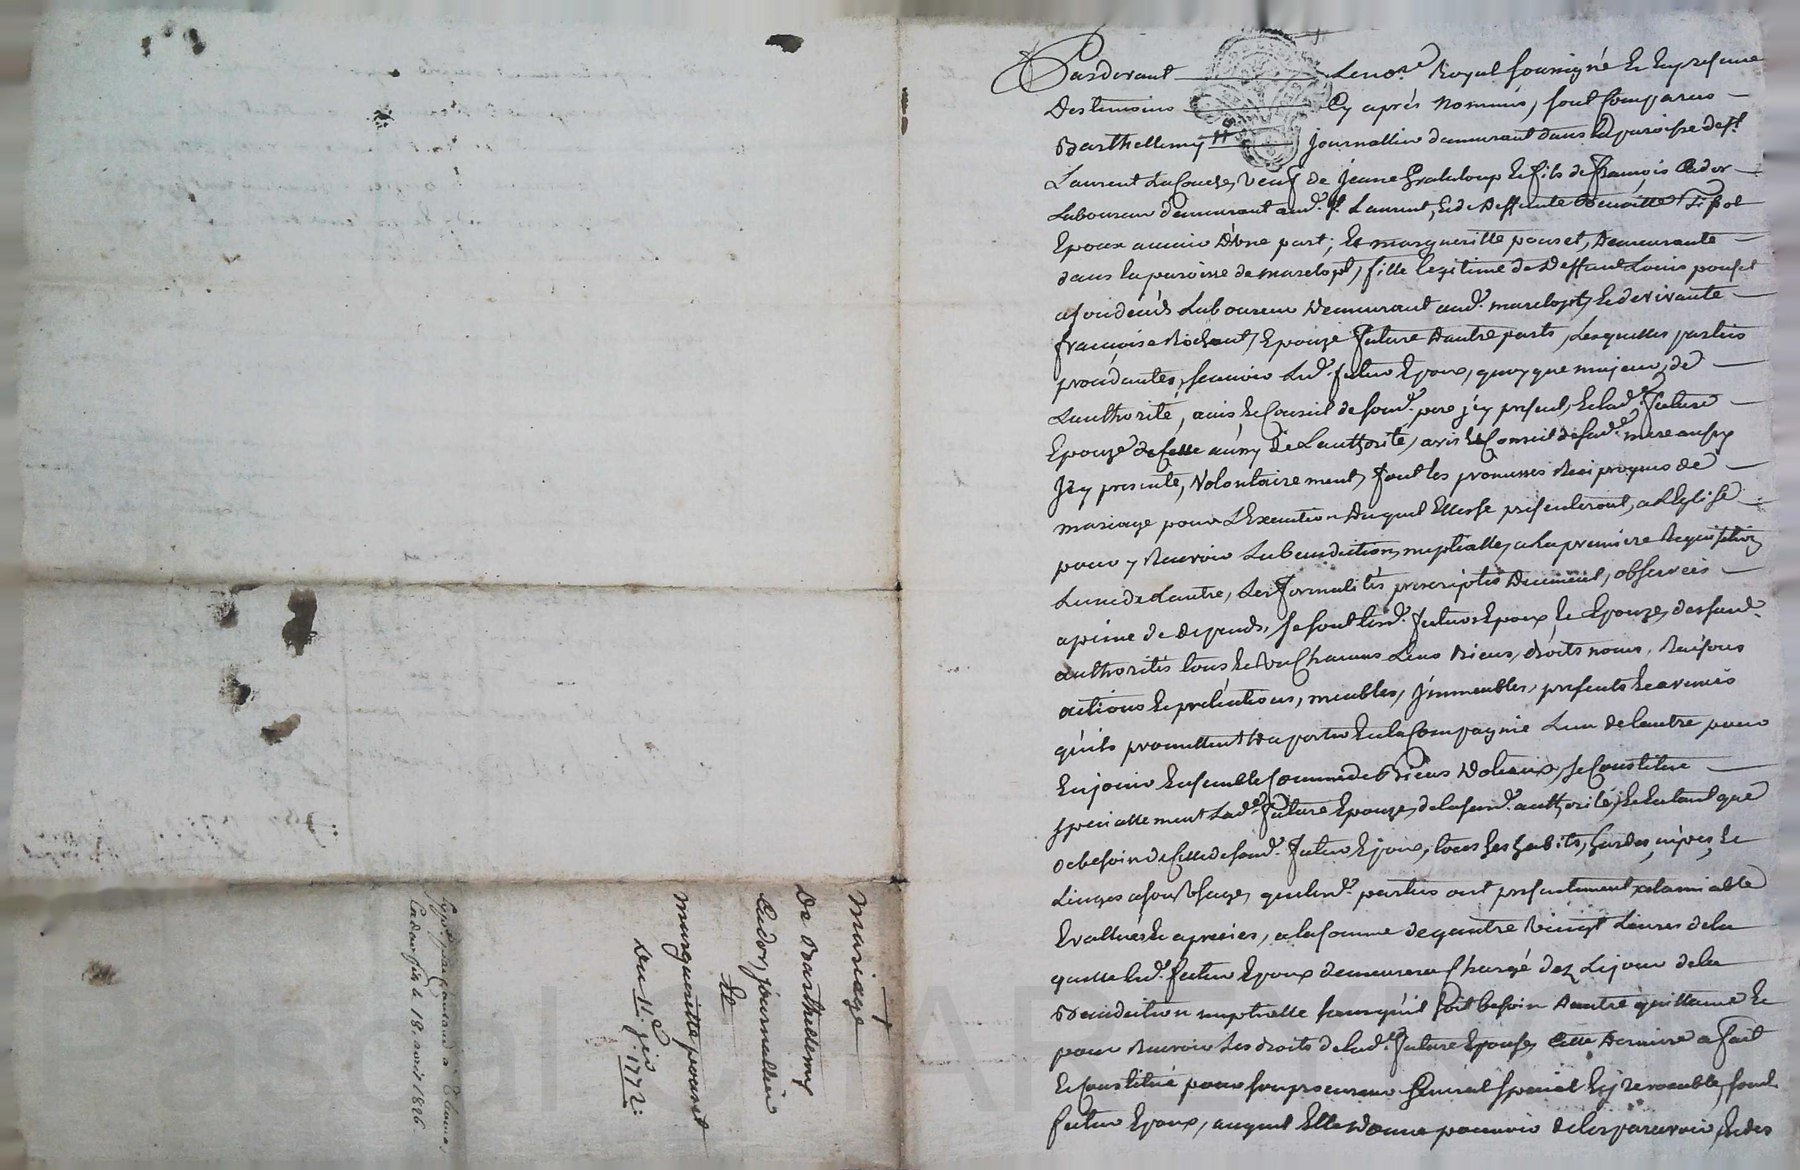 Pardevant Le no.re Royal soussigné Et En presence
Des temoins Cy aprés nommés, sont comparus
Barthellemy journallier demeurant dans la paroisse de st.
Laurent La Conche, veuf de Jeane Grataloup et fils de françois Cador
Laboureur demeurant aud. st. Laurent, Et de deffunte Benoitte
Epoux avenir D'Une part; Et margueritte pouset, Demeurante
dans la paroisse de marclopt, fille legitime de deffunt Louis pouset
a son decés Laboureur Demeurant aud. marclopt, Et de vivante
francoise Epouze future D'autre parts, Lesquelles parties
procédantes, scavoir Led. futur Epoux, quoyque majeur, de
L'authorité, avis, Et Conseil de sond. pere j'cy present, Et lad. future
Epouze de celle aussy De L'authorité, avis Et Conseil de sad. mere aussy
J'cy presente, Volontairement, font les promesses Reciproques de
mariage pour L'Execution duquel Elles se presenteront, a L'Eglise
pour y Recevoir La benediction nuptialle, a la premiere Requisition
L'une de L'autre, Les formalités prescriptes Duement, observées
a peine de depends, se sont lesd. futurs Epoux, Et Epouze, desfand.
authorités tous Et Un Chacuns Leurs Biens, droits noms, Raisons
actions Et pretentions, meubles, J'mmeubles, presents Et avenirs
qu'ils promettent d'aporter En la Compagnie L'un de l'autre pour
En jouir Ensemble Comme de Biens Dotaux, se Constitue
specialement Lad. future Epouze, de la susd. authorité, Et En tant que
de besoin de celle de sond. futur Epoux, tous ses habits, hardes, nipes, Et
Linges a son Usage, que lesd. parties ont presentement a lamiable
Evalluées Et apreciés, a la somme de quatre Vingt Livres de la
quelle led. futur Epoux demeurera Chargé dez Le jour de la
Benediction nuptialle sans qu'il soit besoin D'autre quittance Et
pour Recevoir Les droits de lad. future Epouse, Cette Derniere a fait
Et Constitué pour son procureur General special Et j'rrevocable, sond.
futur Epoux, auquel Elle Donne pouvoir de les percevoir, Et des
mariage
De Barthellemy
Cador, journallier
Et
margueritte pouset
Du 11.
1772.
le 18 avril 1826